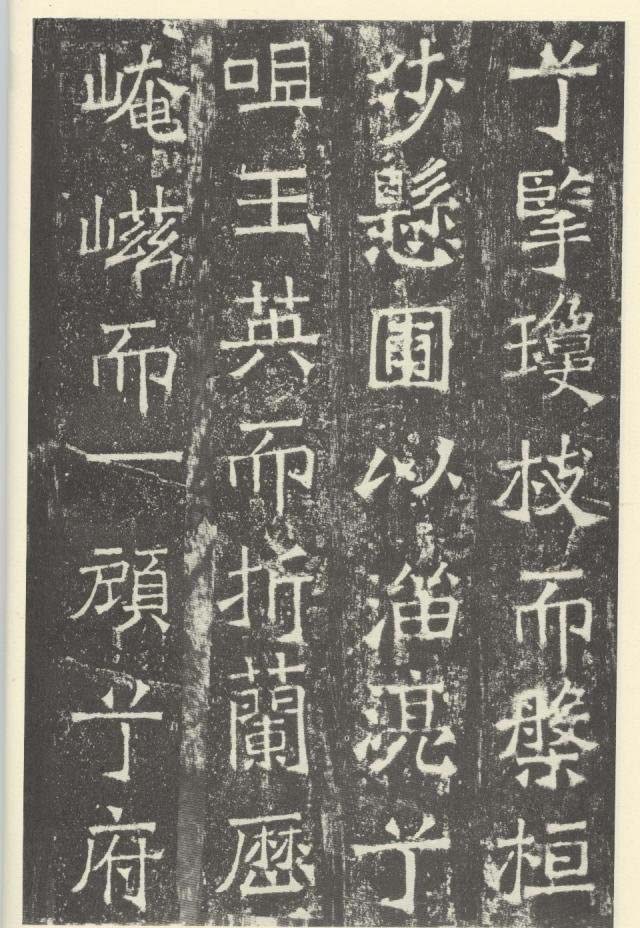 兮擥瓊枝而槃桓
步懸圃以溜湸兮
咀玉英而折蘭歷
崦嵫而一顧兮府